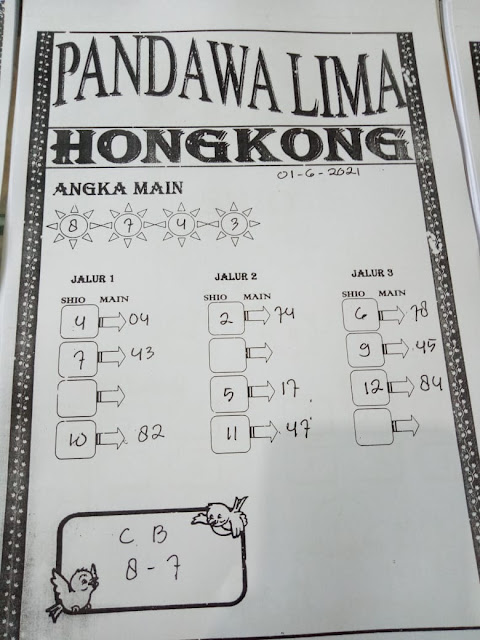 PANDAWA LIMA
HONGKONG
01-6-2021
ANGKA MAIN
8 7 4 3
JALUR 1 JALUR 2 JALUR 3
SHIO MAIN SHIO MAIN SHIO MAIN
4 04 2 74 6 78
7 43 9 45
5 17 12 84
10 82 11 47
C B
8 - 7